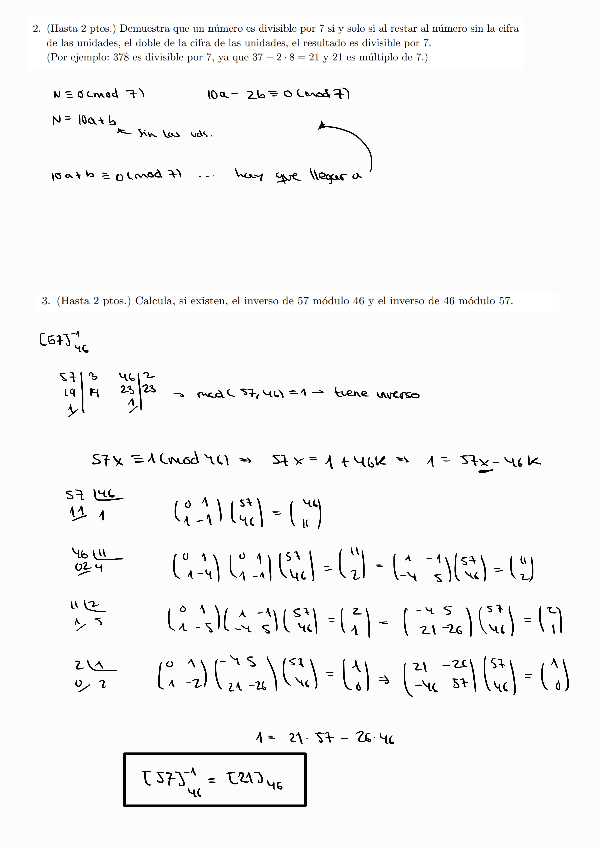 2. (Hasta 2 ptos.) Demuestra que un número es divisible por 7 si y solo si al restar al número sin la cifra
de las unidades, el doble de la cifra de las unidades, el resultado es divisible por 7.
(Por ejemplo: 378 es divisible por 7, ya que 37 − 2 · 8 = 21 y 21 es múltiplo de 7.)
N ≡ 0 (mod 7) 10a - 2b ≡ 0 (mod 7)
N = 10a + b
sin las uds.
10a + b ≡ 0 (mod 7) ... hay que llegar a
3. (Hasta 2 ptos.) Calcula, si existen, el inverso de 57 módulo 46 y el inverso de 46 módulo 57.
[57]⁻¹₄₆
57 | 3 46 | 2
19 | 19 23 | 23 → mcd(57,46) = 1 → tiene inverso
1 1
57x ≡ 1 (mod 46) ⇒ 57x = 1 + 46k ⇒ 1 = 57x - 46k
57 | 46 (0 1 / 1 -1) (57 / 46) = (46 / 11)
11 1
46 | 11 (0 1 / 1 -4) (0 1 / 1 -1) (57 / 46) = (11 / 2) = (1 -1 / -4 5) (57 / 46) = (11 / 2)
02 4
11 | 2 (0 1 / 1 -5) (1 -1 / -4 5) (57 / 46) = (2 / 1) = (-4 5 / 21 -26) (57 / 46) = (2 / 1)
1 5
2 | 1 (0 1 / 1 -2) (-4 5 / 21 -26) (57 / 46) = (1 / 0) ⇒ (21 -26 / -46 57) (57 / 46) = (1 / 0)
0 2
1 = 21·57 - 26·46
[57]⁻¹₄₆ = [21]₄₆